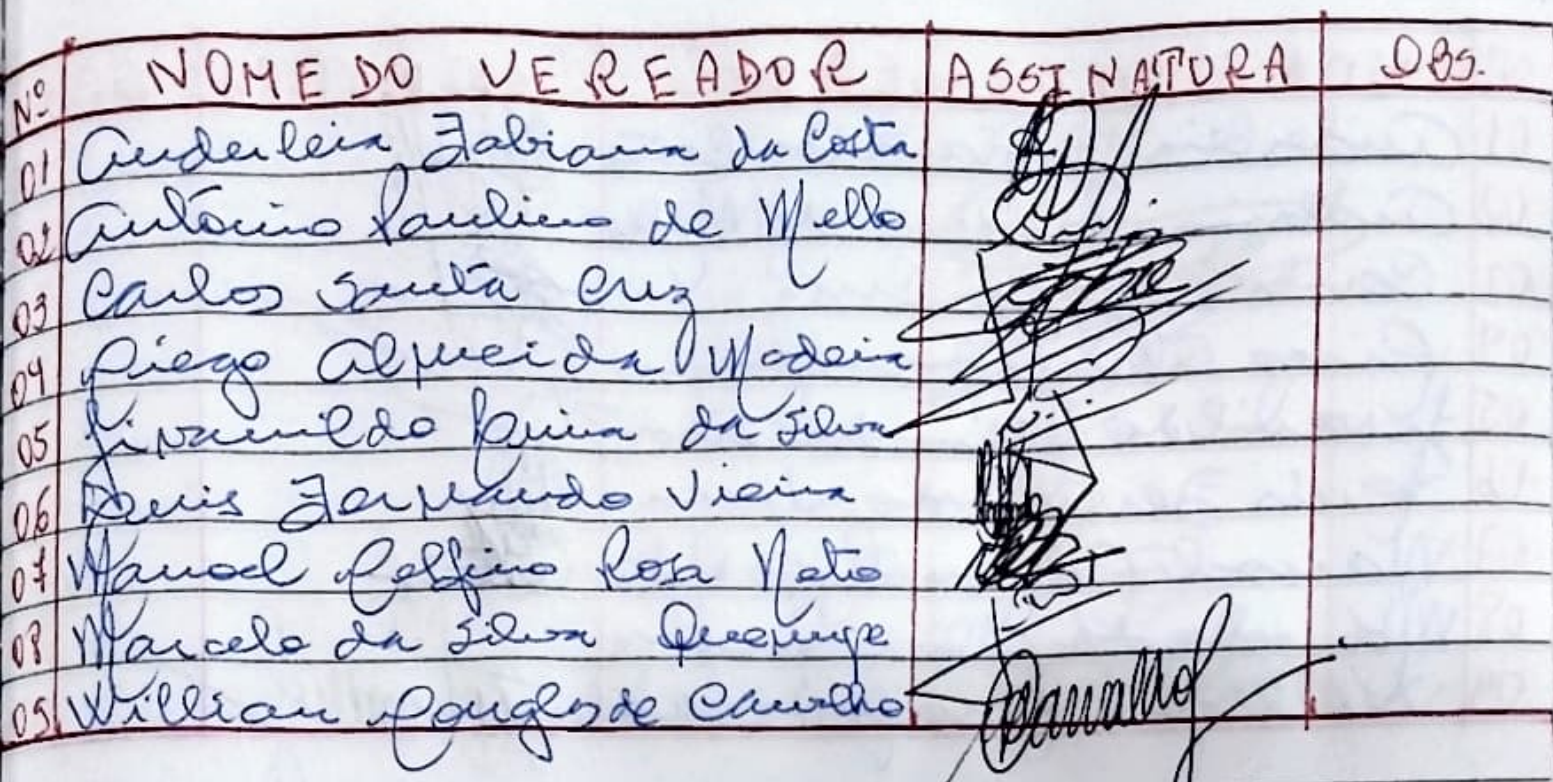 Nº NOME DO VEREADOR ASSINATURA OBS.
01 Anderleia Fabiana da Costa
02 Antônio Paulino de Mello
03 Carlos Santa Cruz
04 Diego Almeida Madeira
05 da Silva
06 Denis Fernando Vieira
07 Manoel Delfino Rosa Neto
08 Marcelo da Silva
09 Willian Douglas de Carvalho Carvalho